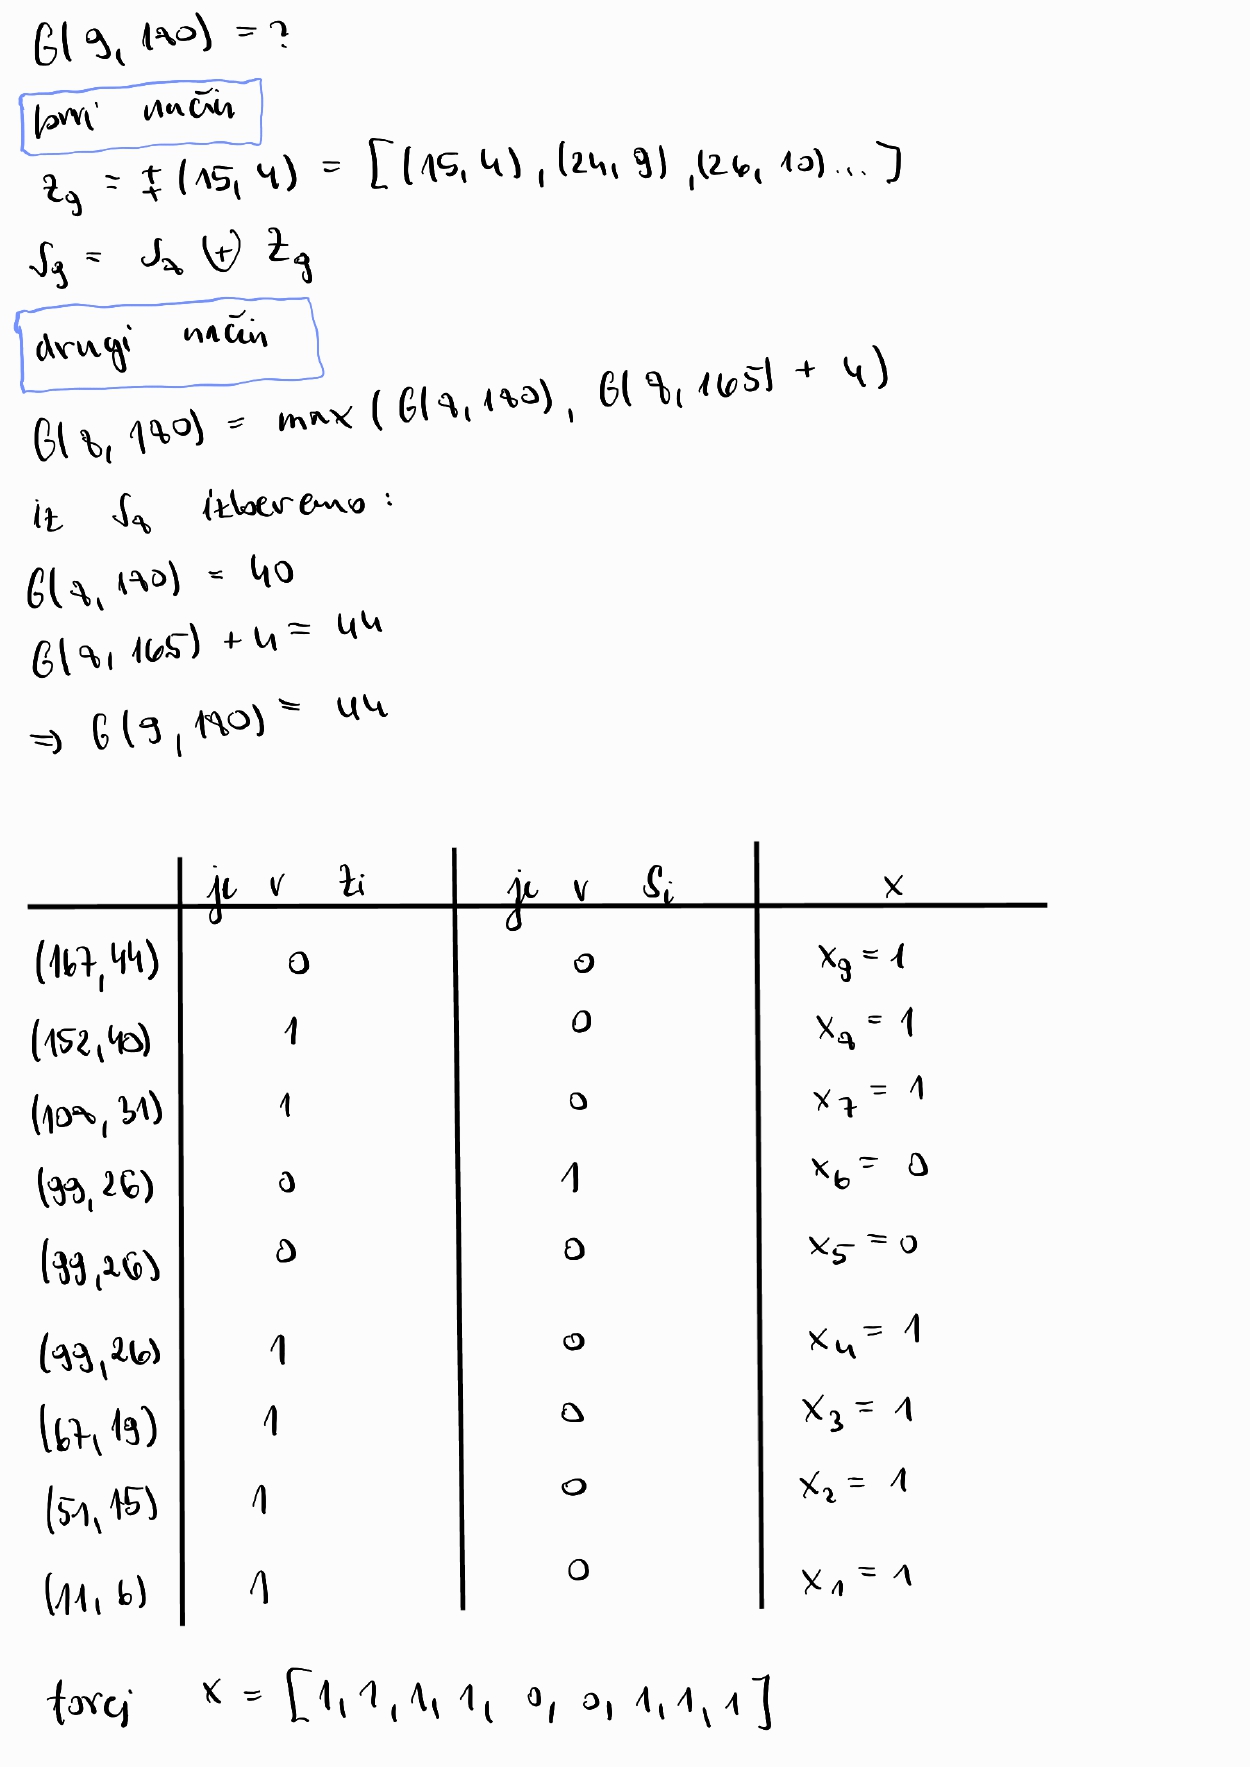 G(9, 180) = ?
prvi način
Z₉ = ‡(15, 4) = [(15, 4), (24, 9), (26, 10)... ]
S₉ = S₈ ⊕ Z₉
drugi način
G(8, 180) = max (G(8, 180), G(8, 165) + 4)
iz S₈ izberemo:
G(8, 180) = 40
G(8, 165) + 4 = 44
⇒ G(9, 180) = 44
je v Zi je v Si x
(167, 44) 0 0 x₉ = 1
(152, 40) 1 0 x₈ = 1
(108, 31) 1 0 x₇ = 1
(99, 26) 0 1 x₆ = 0
(99, 26) 0 0 x₅ = 0
(99, 26) 1 0 x₄ = 1
(67, 19) 1 0 x₃ = 1
(51, 15) 1 0 x₂ = 1
(11, 6) 1 0 x₁ = 1
torej x = [1, 1, 1, 1, 0, 0, 1, 1, 1]